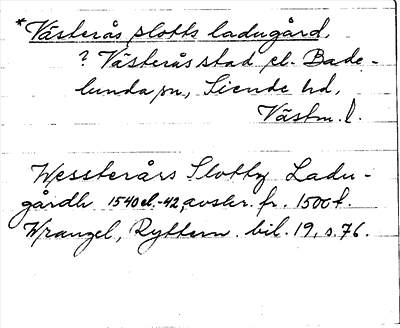 *Västerås slotts ladugård,
? Västerås stad el. Bade-
lunda sn, Siende hd,
Västm. l.
Wessterårs Slottz Ladu-
gårdh 1540 el. -42, avskr. fr. 1500 t.
Wrangel, Ryttern. bil. 19, s. 76.